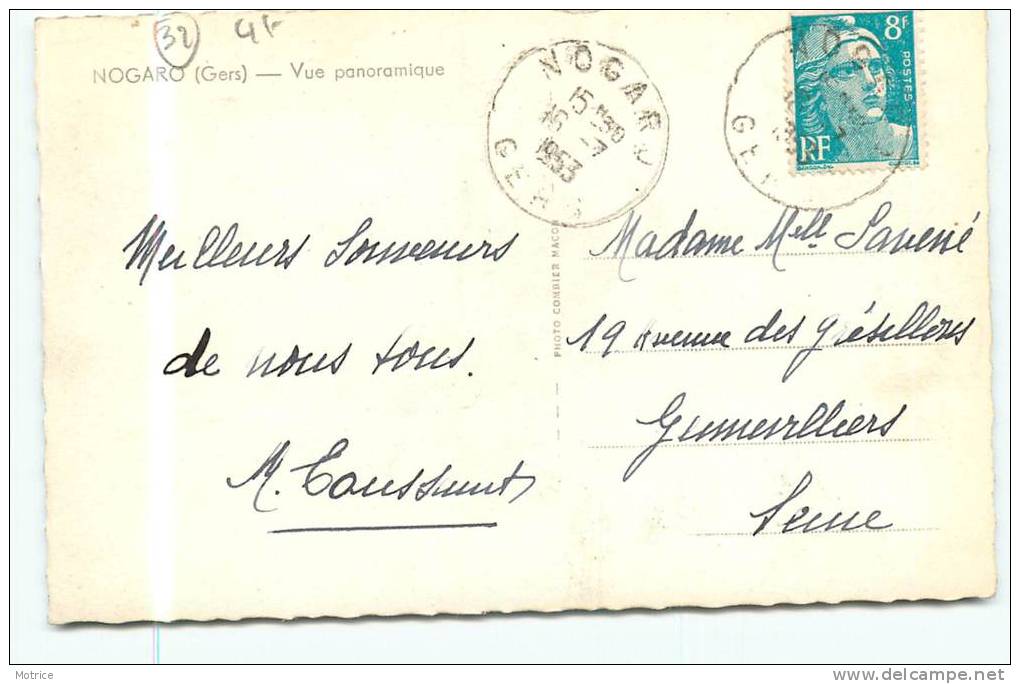 32 4F
NOGARO (Gers) — Vue panoramique
NOGARO
15 15 30
1953
GERS
8F
POSTES
RF
Meilleurs Souvenirs
de nous tous.
M.
PHOTO COMBIER MACON
Madame Melle
19 Avenue des Grésillons
Gennevilliers
Seine
Motrice
delcampe.net